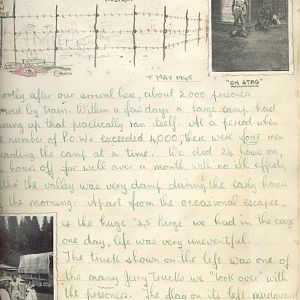 MAY 1945
"ON STAG"
ortly after our arrival here, about 2,000 prisoners
rived by train. Within a few days a large camp had
rung up that practically ran itself. At a period when
number of P.O.W's exceeded 4,000, there were four men
arding the camp at a time. We did 24 hours on,
hours off for well over a month with no ill effects,
the valley was very damp during the early hours
the morning. Apart from the occasional escapee,
& the huge "3,5 purge" we had in the cage
one day, life was very uneventful.
The truck shown on the left was one of
the many Jerry trucks we "took over" with
the prisoners. The flag on its left mudguard